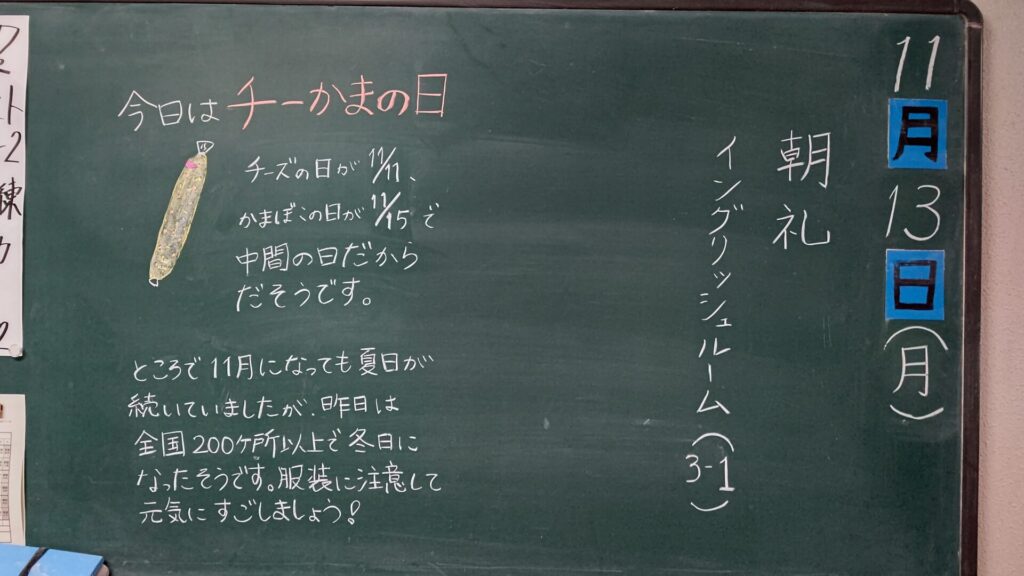 11月13日(月)
朝礼
イングリッシュルーム(3-1)
今日はチーかまの日
チーズの日が11/11、
かまぼこの日が11/15で
中間の日だから
だそうです。
ところで11月になっても夏日が
続いていましたが、昨日は
全国200ケ所以上で冬日に
なったそうです。服装に注意して
元気にすごしましょう!